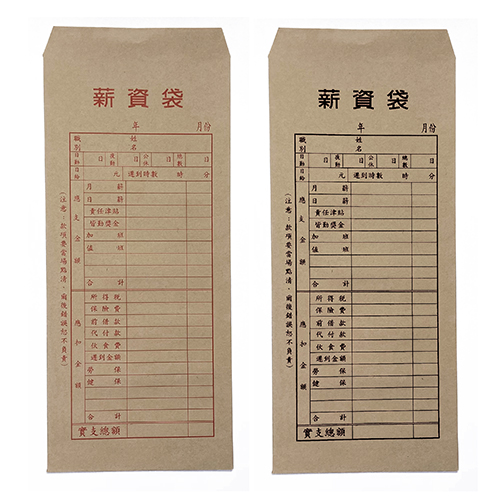 薪資袋
年 月份
職別 姓名
日勤 日 夜勤 日 公休 日 總數 日
日給 元 遲到時數 時 分
應支金額
月薪
日薪
責任津貼
皆勤獎金
加班
值班
合計
應扣金額
所得稅
保險費
前借款
代付款
伙食費
遲到金額
勞保
健保
合計
實支總額
(注意:款項要當場點清,爾後錯誤恕不負責)
薪資袋
年 月份
職別 姓名
日勤 日 夜勤 日 公休 日 總數 日
日給 元 遲到時數 時 分
應支金額
月薪
日薪
責任津貼
皆勤獎金
加班
值班
合計
應扣金額
所得稅
保險費
前借款
代付款
伙食費
遲到金額
勞保
健保
合計
實支總額
(注意:款項要當場點清,爾後錯誤恕不負責)